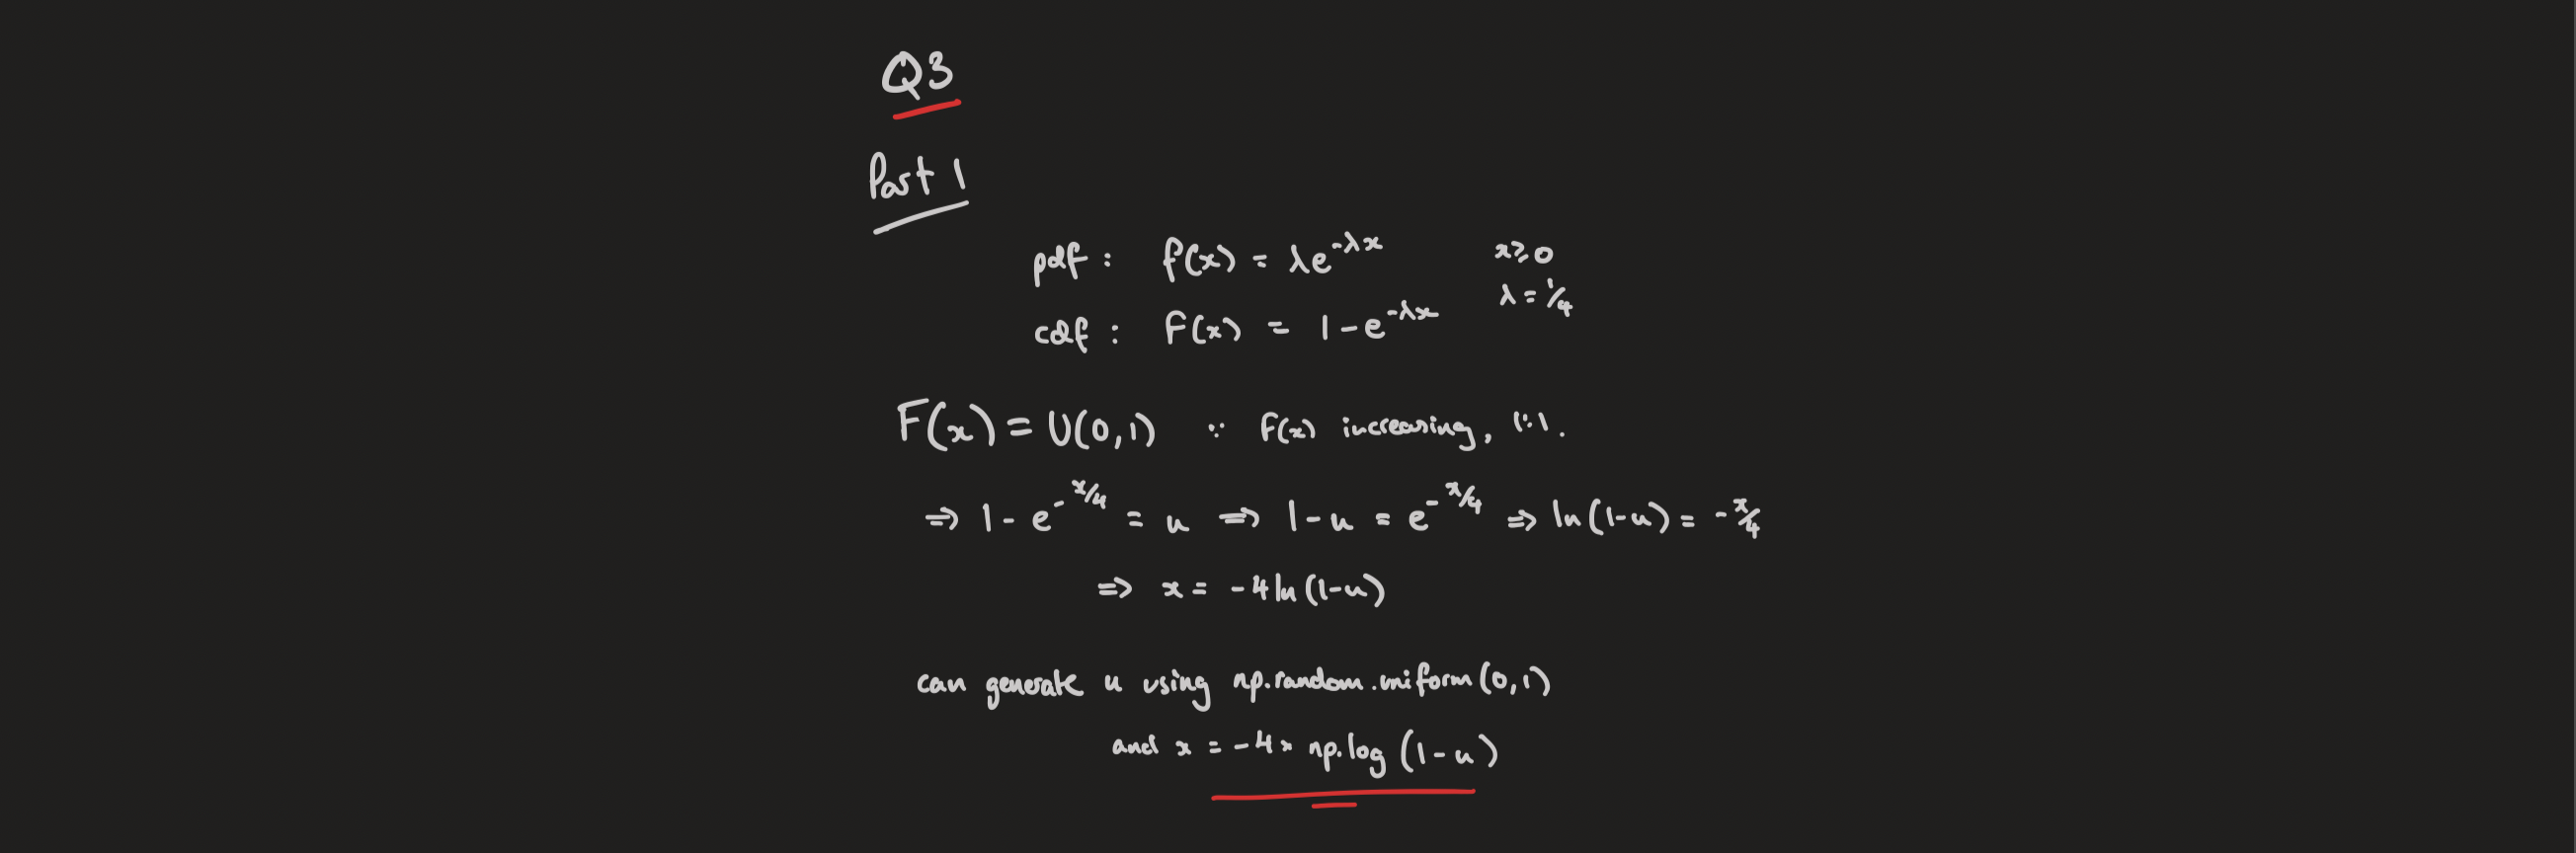 Q3
Part 1
pdf : f(x) = λe^{-λx} x ≥ 0
λ = 1/4
cdf : F(x) = 1 - e^{-λx}
F(x) = U(0,1) ∵ F(x) increasing, 1:1.
⇒ 1 - e^{-x/4} = u ⇒ 1 - u = e^{-x/4} ⇒ ln(1-u) = -x/4
⇒ x = -4 ln(1-u)
can generate u using np.random.uniform(0,1)
and x = -4 * np.log(1-u)